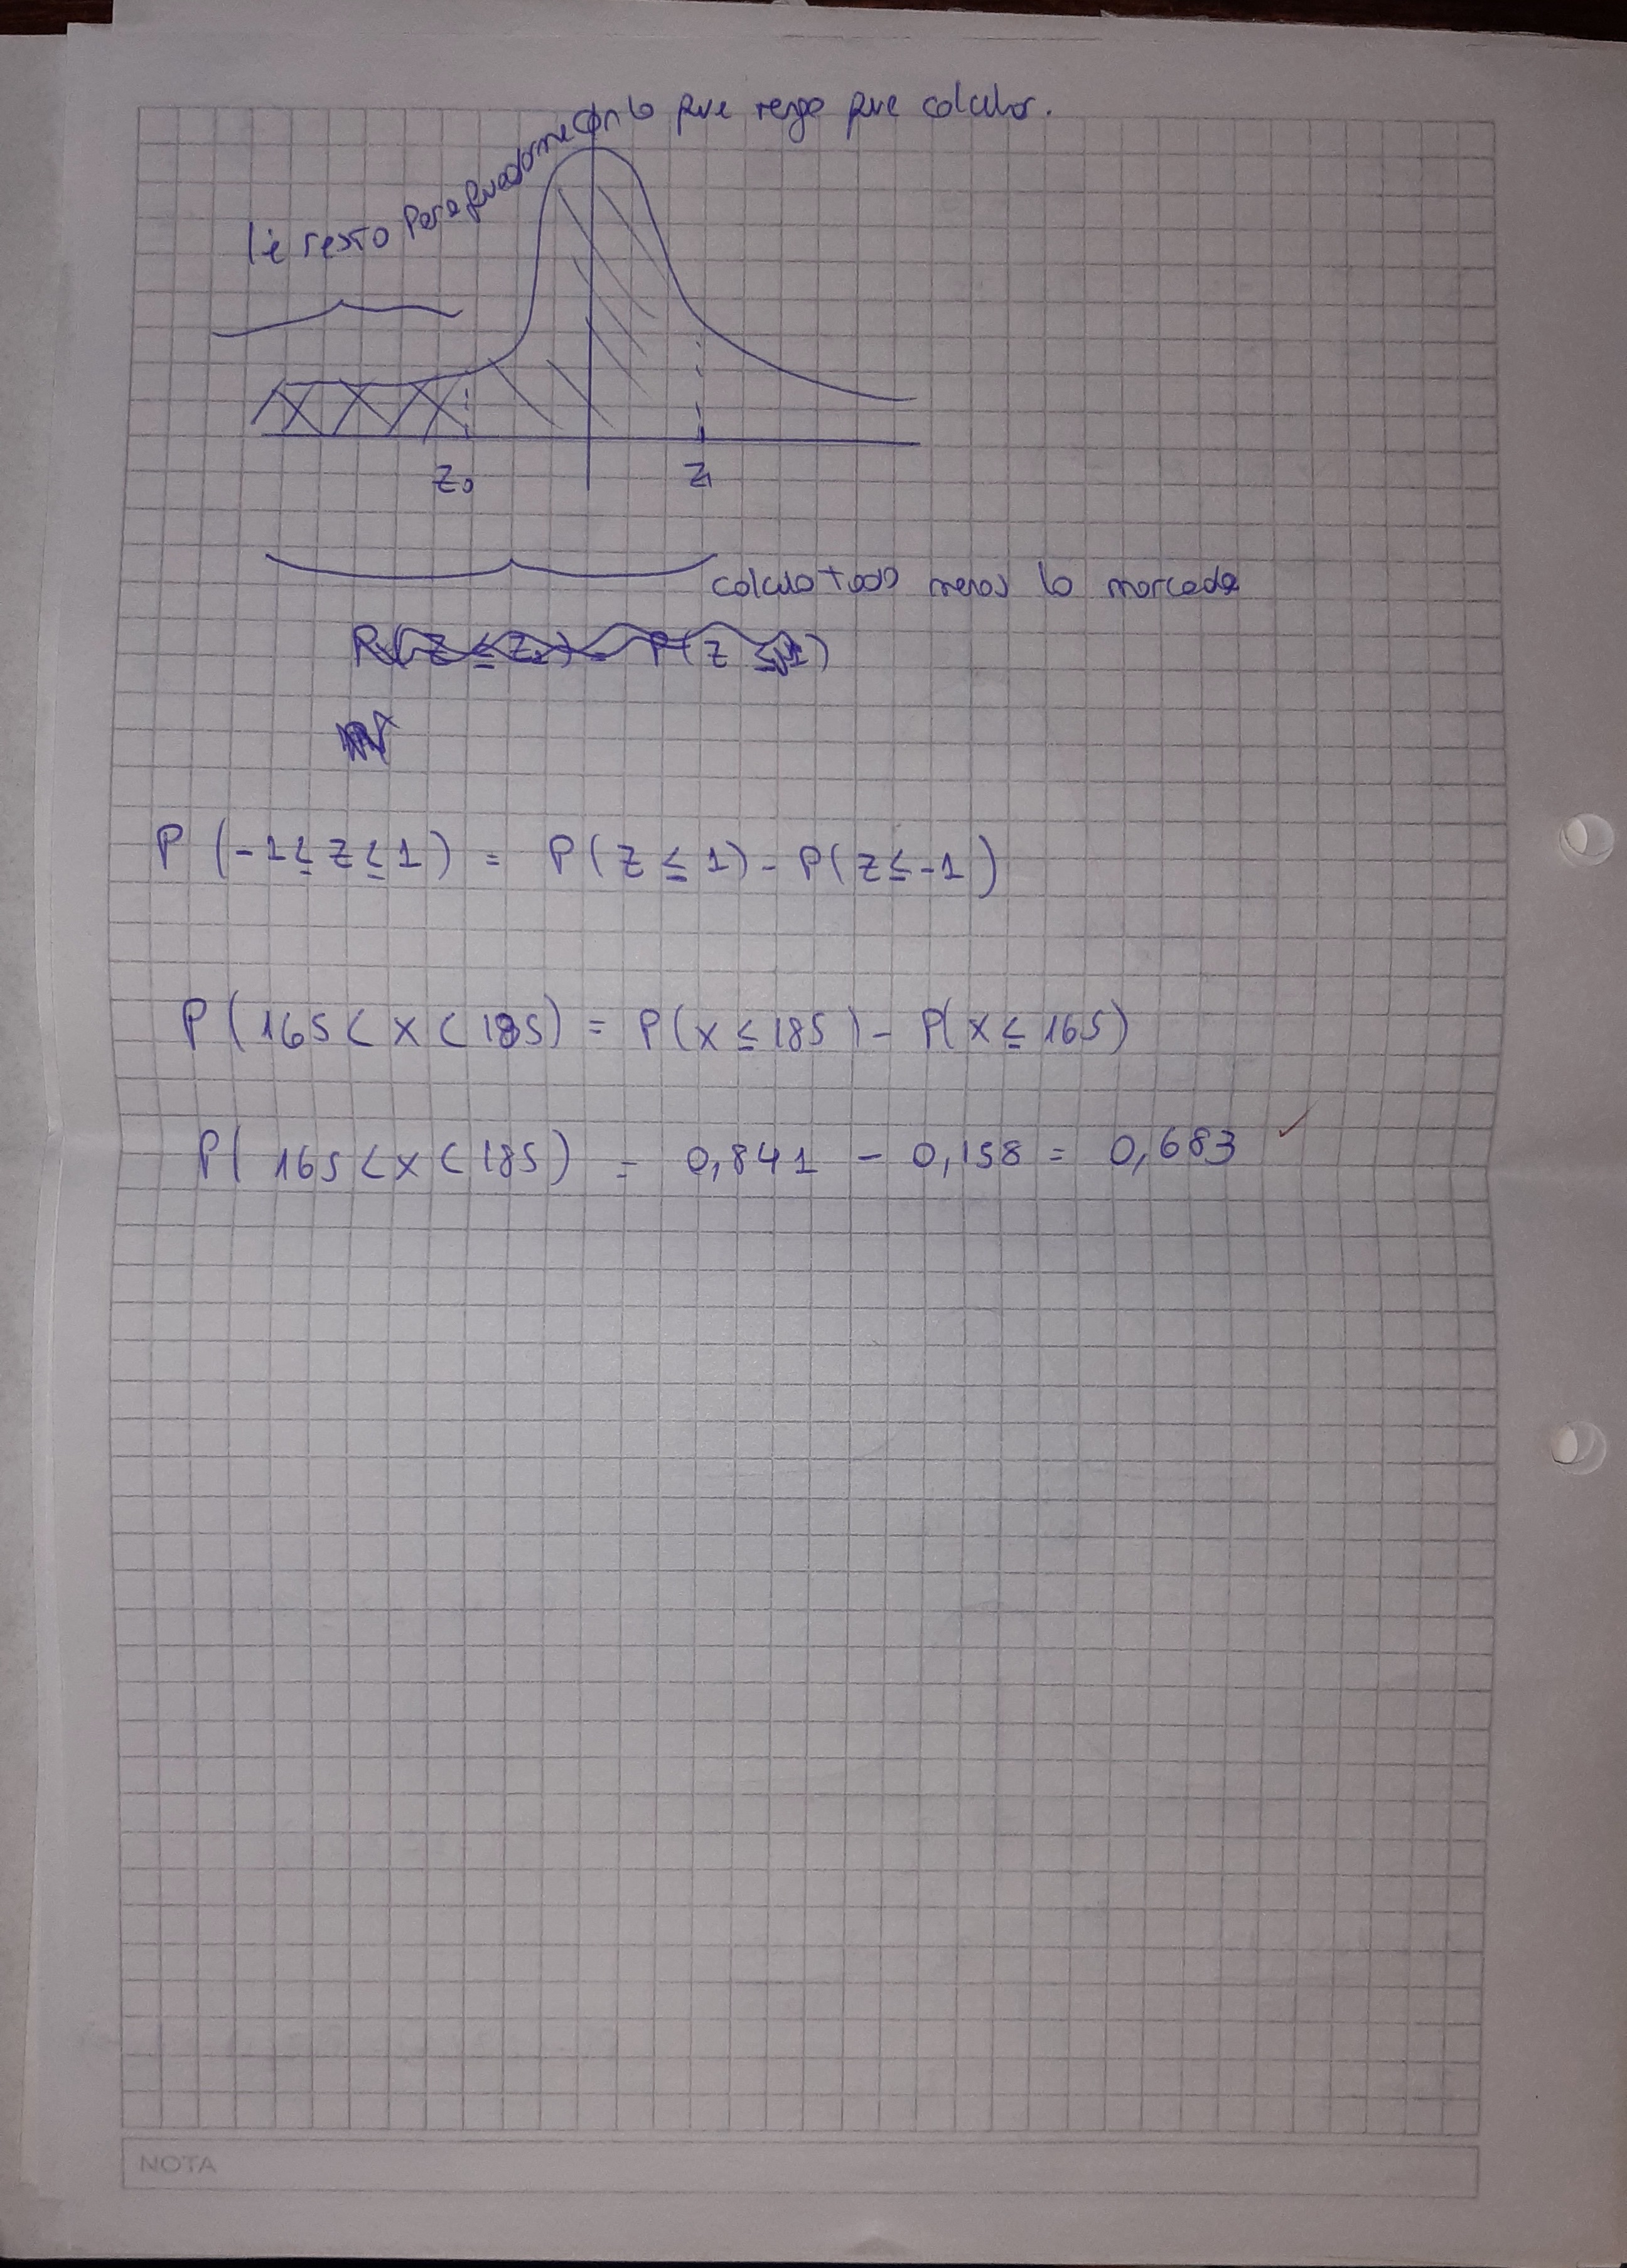 le resto para quedarme con lo que tengo que calcular.
Z₀ Z₁
calculo todo menos lo marcado
P(Z ≤ Z₁) - P(Z ≤ 1)
P (-1 ≤ Z ≤ 1) = P(Z ≤ 1) - P(Z ≤ -1)
P(165 < x < 185) = P(x ≤ 185) - P(x ≤ 165)
P(165 < x < 185) = 0,841 - 0,158 = 0,683 ✓
NOTA